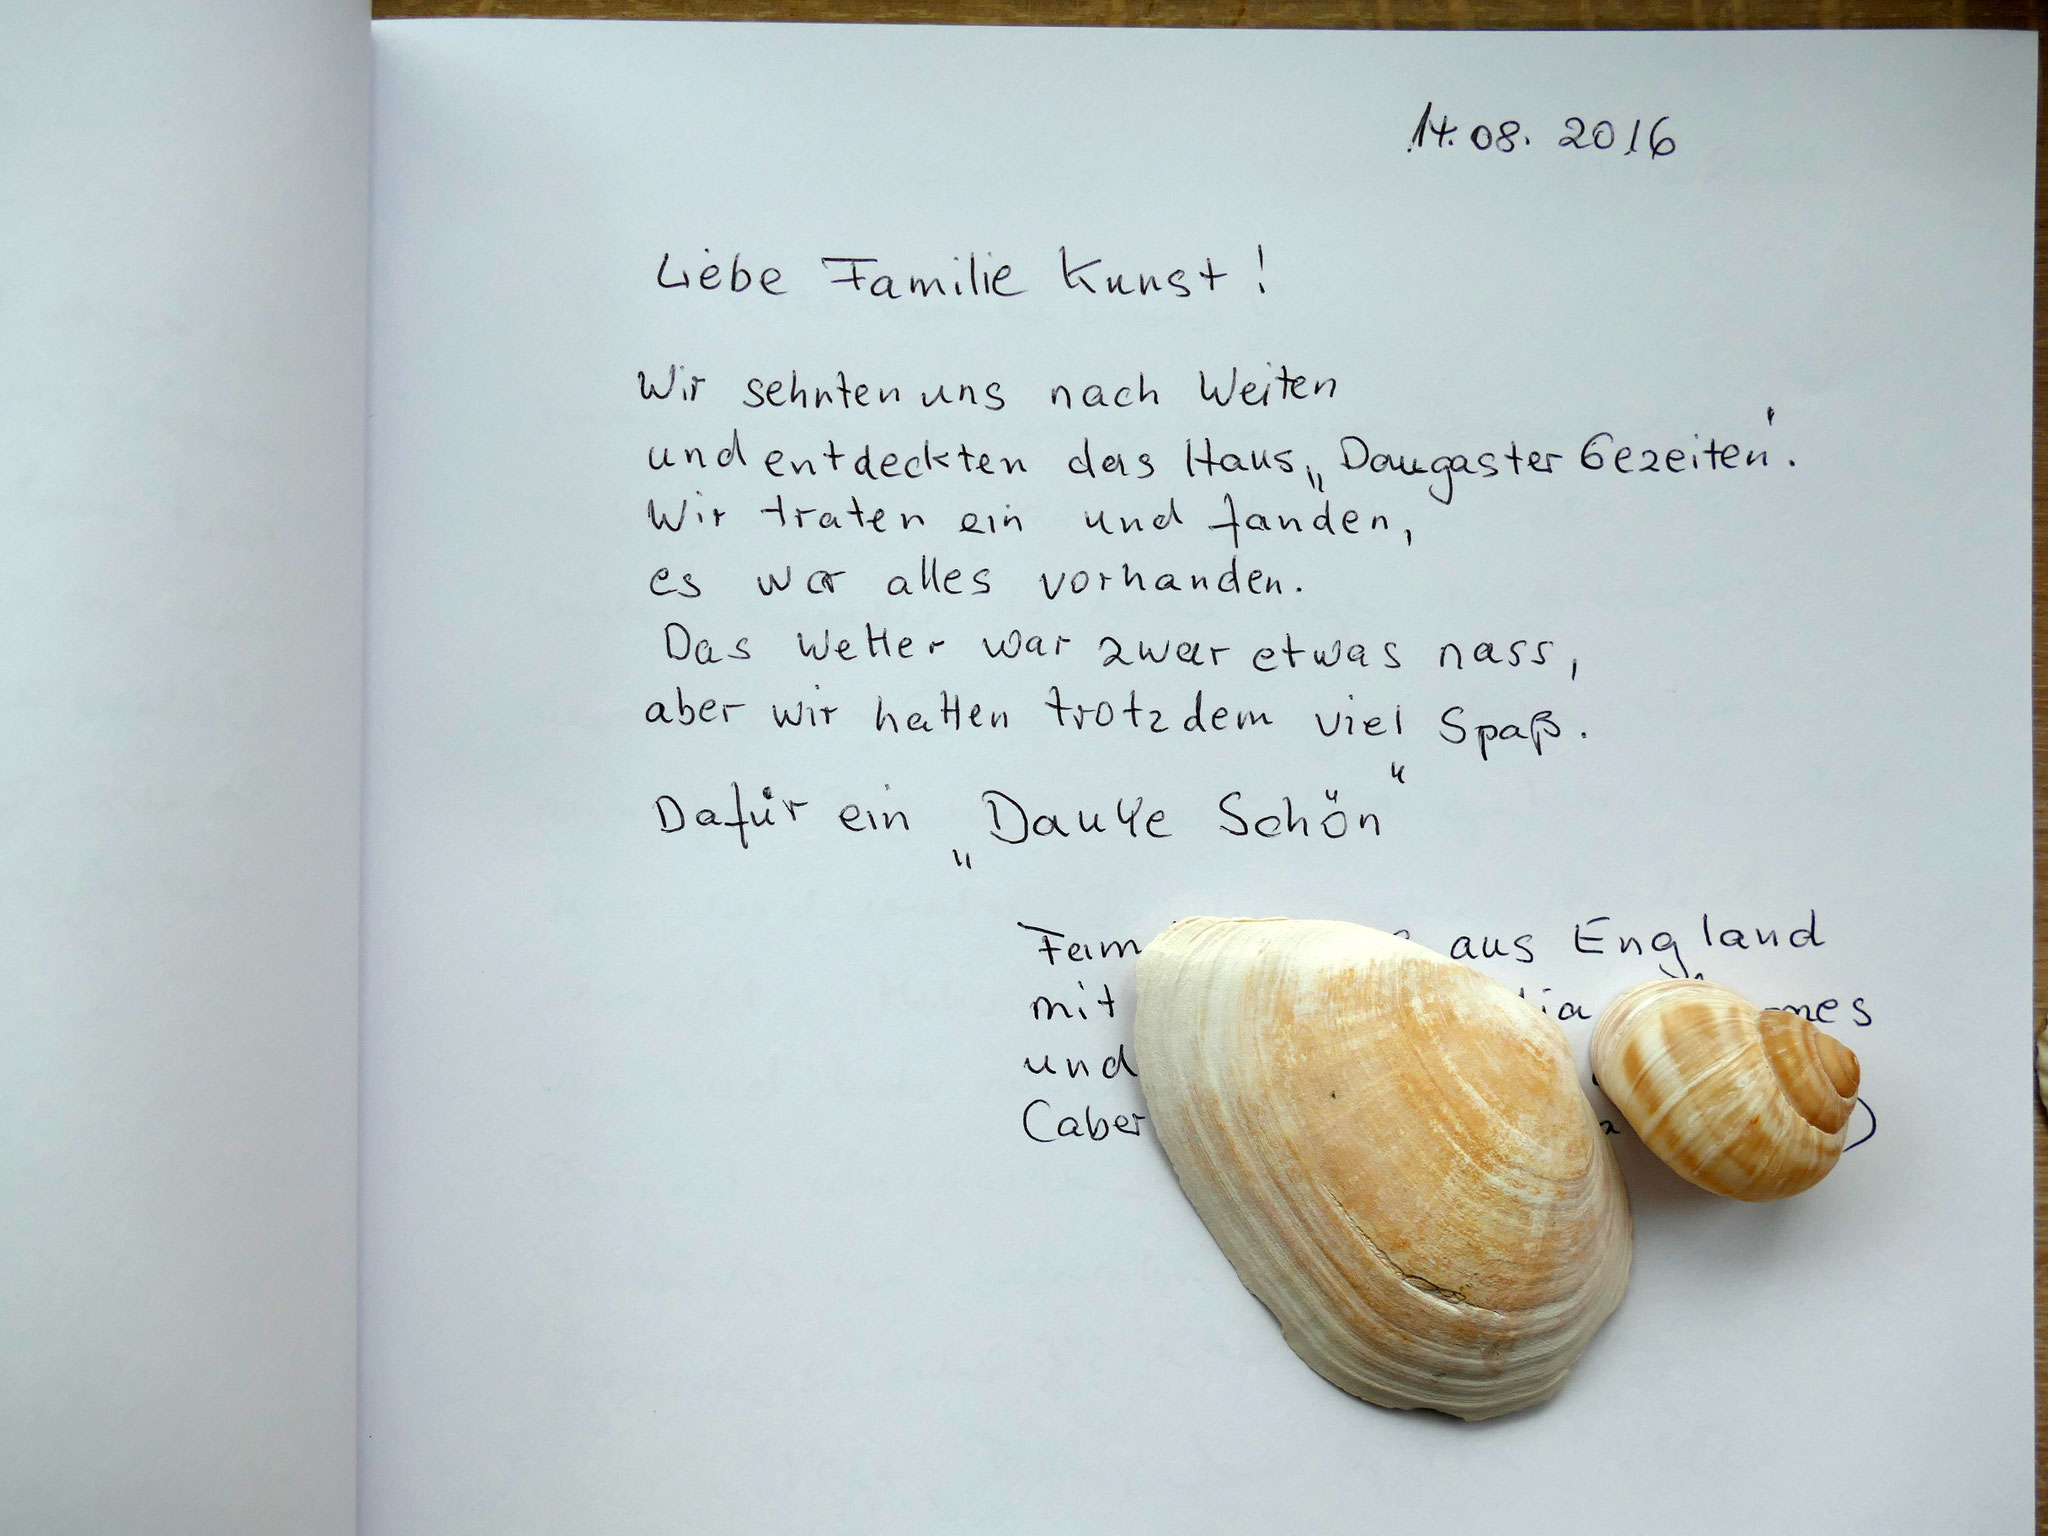 14.08. 2016
Liebe Familie Kunst!
Wir sehnten uns nach Weiten
und entdeckten das Haus „Dangaster Gezeiten".
Wir traten ein und fanden,
es war alles vorhanden.
Das Wetter war zwar etwas nass,
aber wir hatten trotzdem viel Spaß.
Dafür ein „Danke Schön"
aus England
mit
und